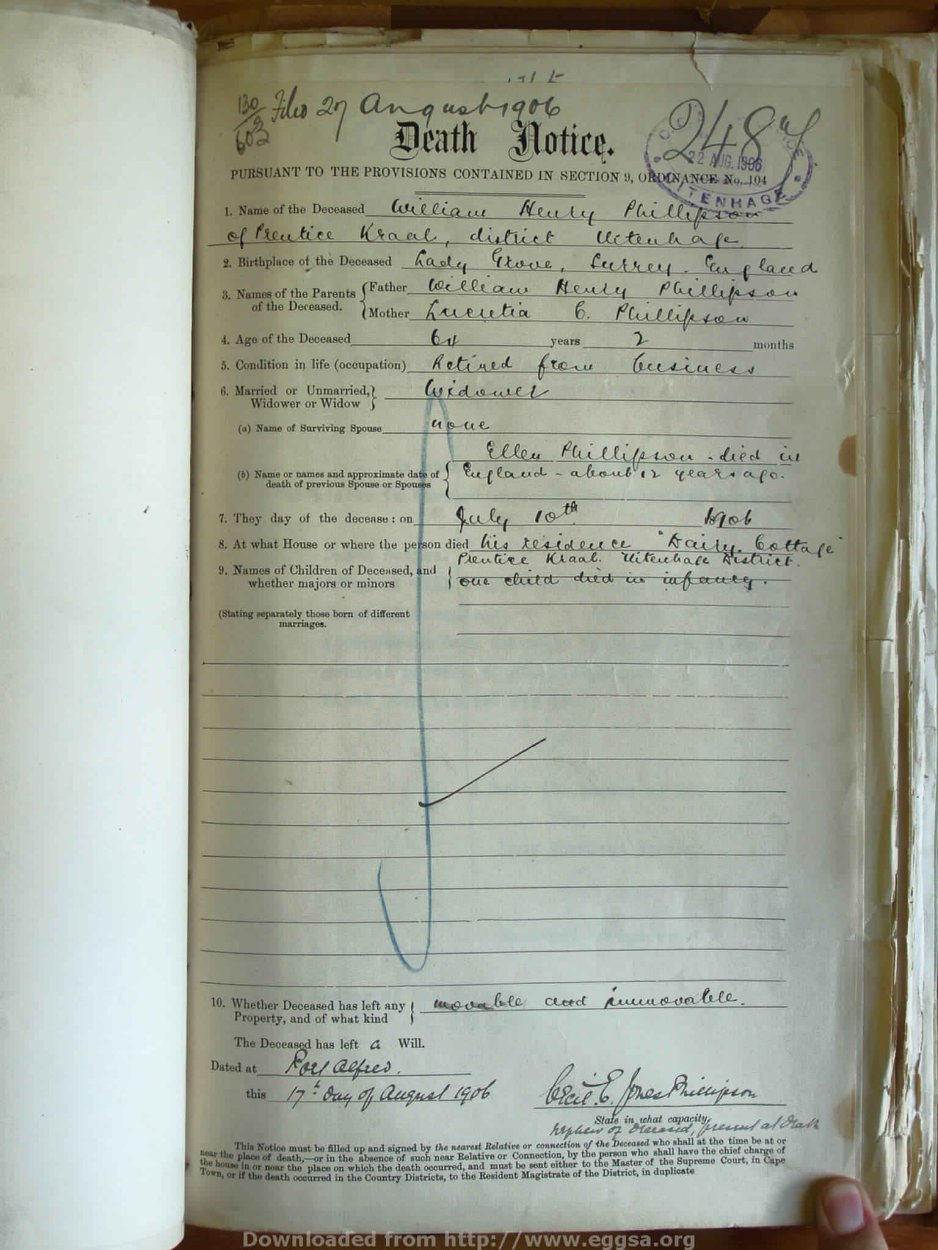 130
602
Filed 27 August 1906
2487
22 AUG. 1906
UITENHAGE
Death Notice.
PURSUANT TO THE PROVISIONS CONTAINED IN SECTION 9, ORDINANCE No. 104
1. Name of the Deceased William Henry Phillipson
of Prentice Kraal, district Uitenhage
2. Birthplace of the Deceased Lady Grove, Surrey. England
3. Names of the Parents of the Deceased. { Father William Henry Phillipson
Mother Lucretia C. Phillipson
4. Age of the Deceased 64 years 2 months
5. Condition in life (occupation) Retired from business
6. Married or Unmarried, Widower or Widow } Widower
(a) Name of Surviving Spouse none
Ellen Phillipson - died in
(b) Name or names and approximate date of death of previous Spouse or Spouses { England - about 12 years ago.
7. They day of the decease: on July 10th 1906
8. At what House or where the person died his residence "Dairy Cottage"
Prentice Kraal. Uitenhage District.
9. Names of Children of Deceased, and whether majors or minors { one child died in infancy.
(Stating separately those born of different marriages.
10. Whether Deceased has left any Property, and of what kind { movable and immovable.
The Deceased has left a Will.
Dated at Port Alfred.
this 17th day of August 1906 Cecil E. Jones Phillipson
State in what capacity,
nephew of deceased, present at death
This Notice must be filled up and signed by the nearest Relative or connection of the Deceased who shall at the time be at or
near the place of death,—or in the absence of such near Relative or Connection, by the person who shall have the chief charge of
the house in or near the place on which the death occurred, and must be sent either to the Master of the Supreme Court, in Cape
Town, or if the death occurred in the Country Districts, to the Resident Magistrate of the District, in duplicate
Downloaded from http://www.eggsa.org